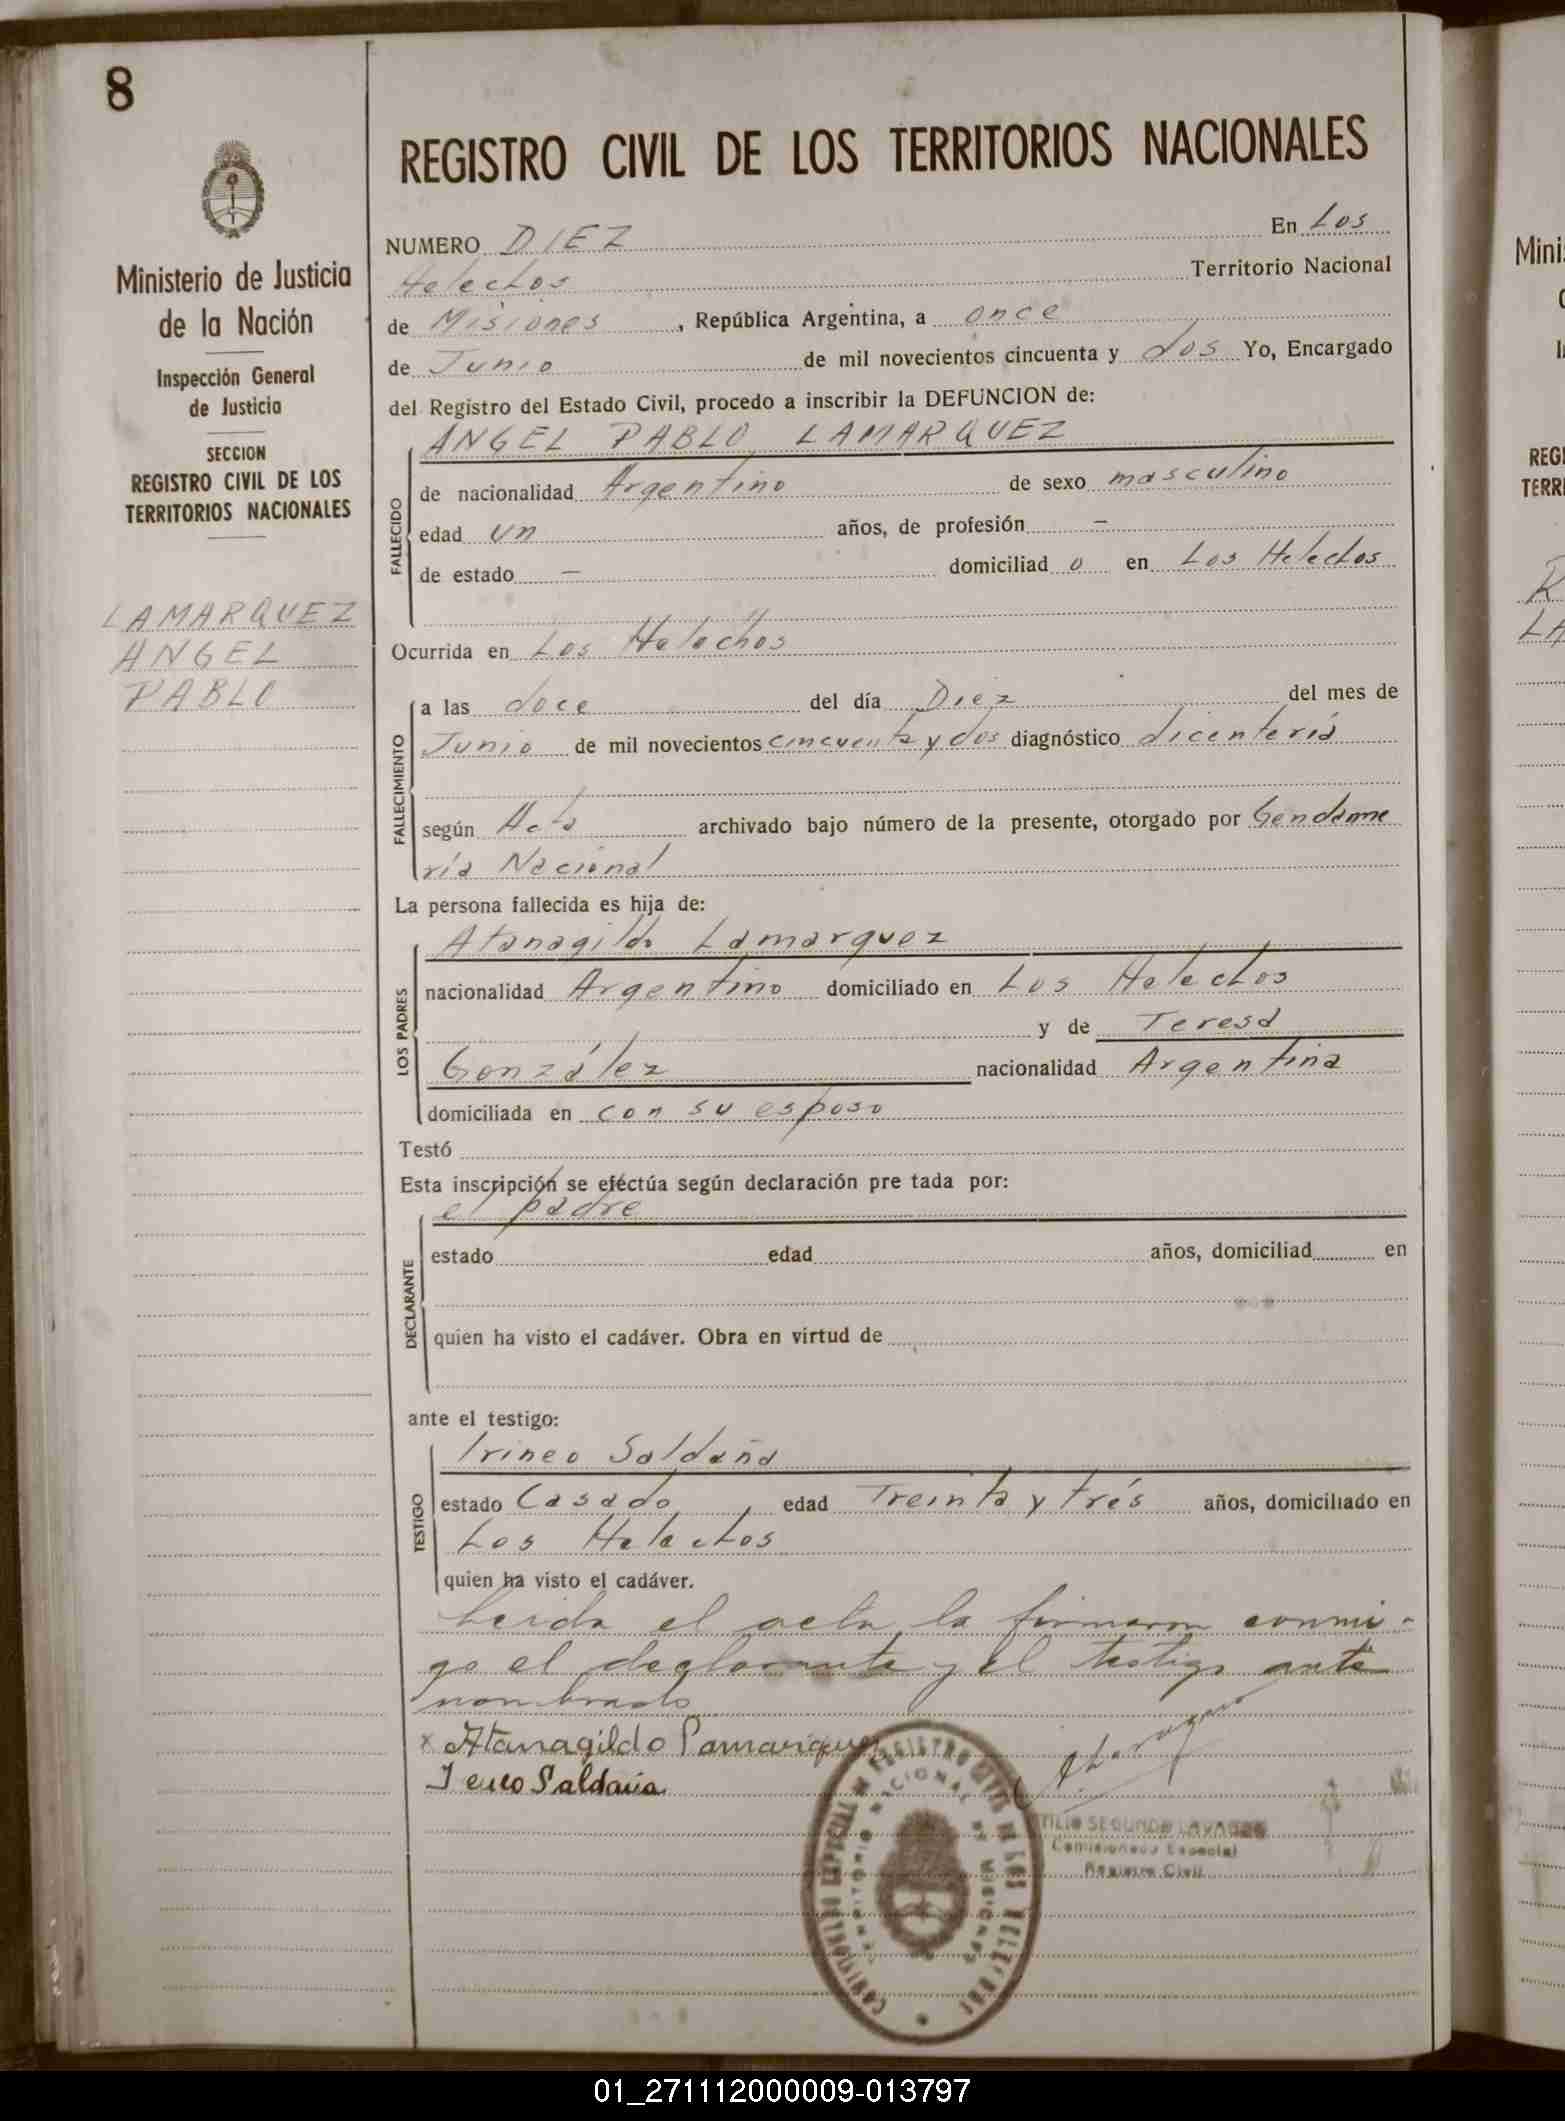 8
REGISTRO CIVIL DE LOS TERRITORIOS NACIONALES
Ministerio de Justicia
de la Nación
Inspección General
de Justicia
SECCION
REGISTRO CIVIL DE LOS
TERRITORIOS NACIONALES
LAMARQUEZ
ANGEL
PABLO
NUMERO DIEZ En Los
Helechos Territorio Nacional
de Misiones, República Argentina, a once
de Junio de mil novecientos cincuenta y dos Yo, Encargado
del Registro del Estado Civil, procedo a inscribir la DEFUNCION de:
FALLECIDO
ANGEL PABLO LAMARQUEZ
de nacionalidad Argentino de sexo masculino
edad un años, de profesión —
de estado — domiciliad o en Los Helechos
Ocurrida en Los Helechos
FALLECIMIENTO
a las doce del día Diez del mes de
Junio de mil novecientos cincuenta y dos diagnóstico dicentería
según Acta archivado bajo número de la presente, otorgado por Gendarme
ría Nacional
La persona fallecida es hija de:
LOS PADRES
Atanagildo Lamarquez
nacionalidad Argentino domiciliado en Los Helechos
y de Teresa
González nacionalidad Argentina
domiciliada en con su esposo
Testó
Esta inscripción se eféctúa según declaración pre tada por:
DECLARANTE
el padre
estado edad años, domiciliad en
quien ha visto el cadáver. Obra en virtud de
ante el testigo:
TESTIGO
Irineo Saldaña
estado Casado, edad Treinta y trés años, domiciliado en
Los Helechos
quien ha visto el cadáver.
Leida el acta la firmaron conmi-
go el declarante y el testigo ante
nombrado
x Atanagildo Lamarquez
Saldaña
SEGUNDO
Comisionado Especial
Registro Civil
REGISTRO CIVIL
TERRITORIO NACIONAL DE MISIONES
Minis
REGI
TERRI
01_271112000009-013797